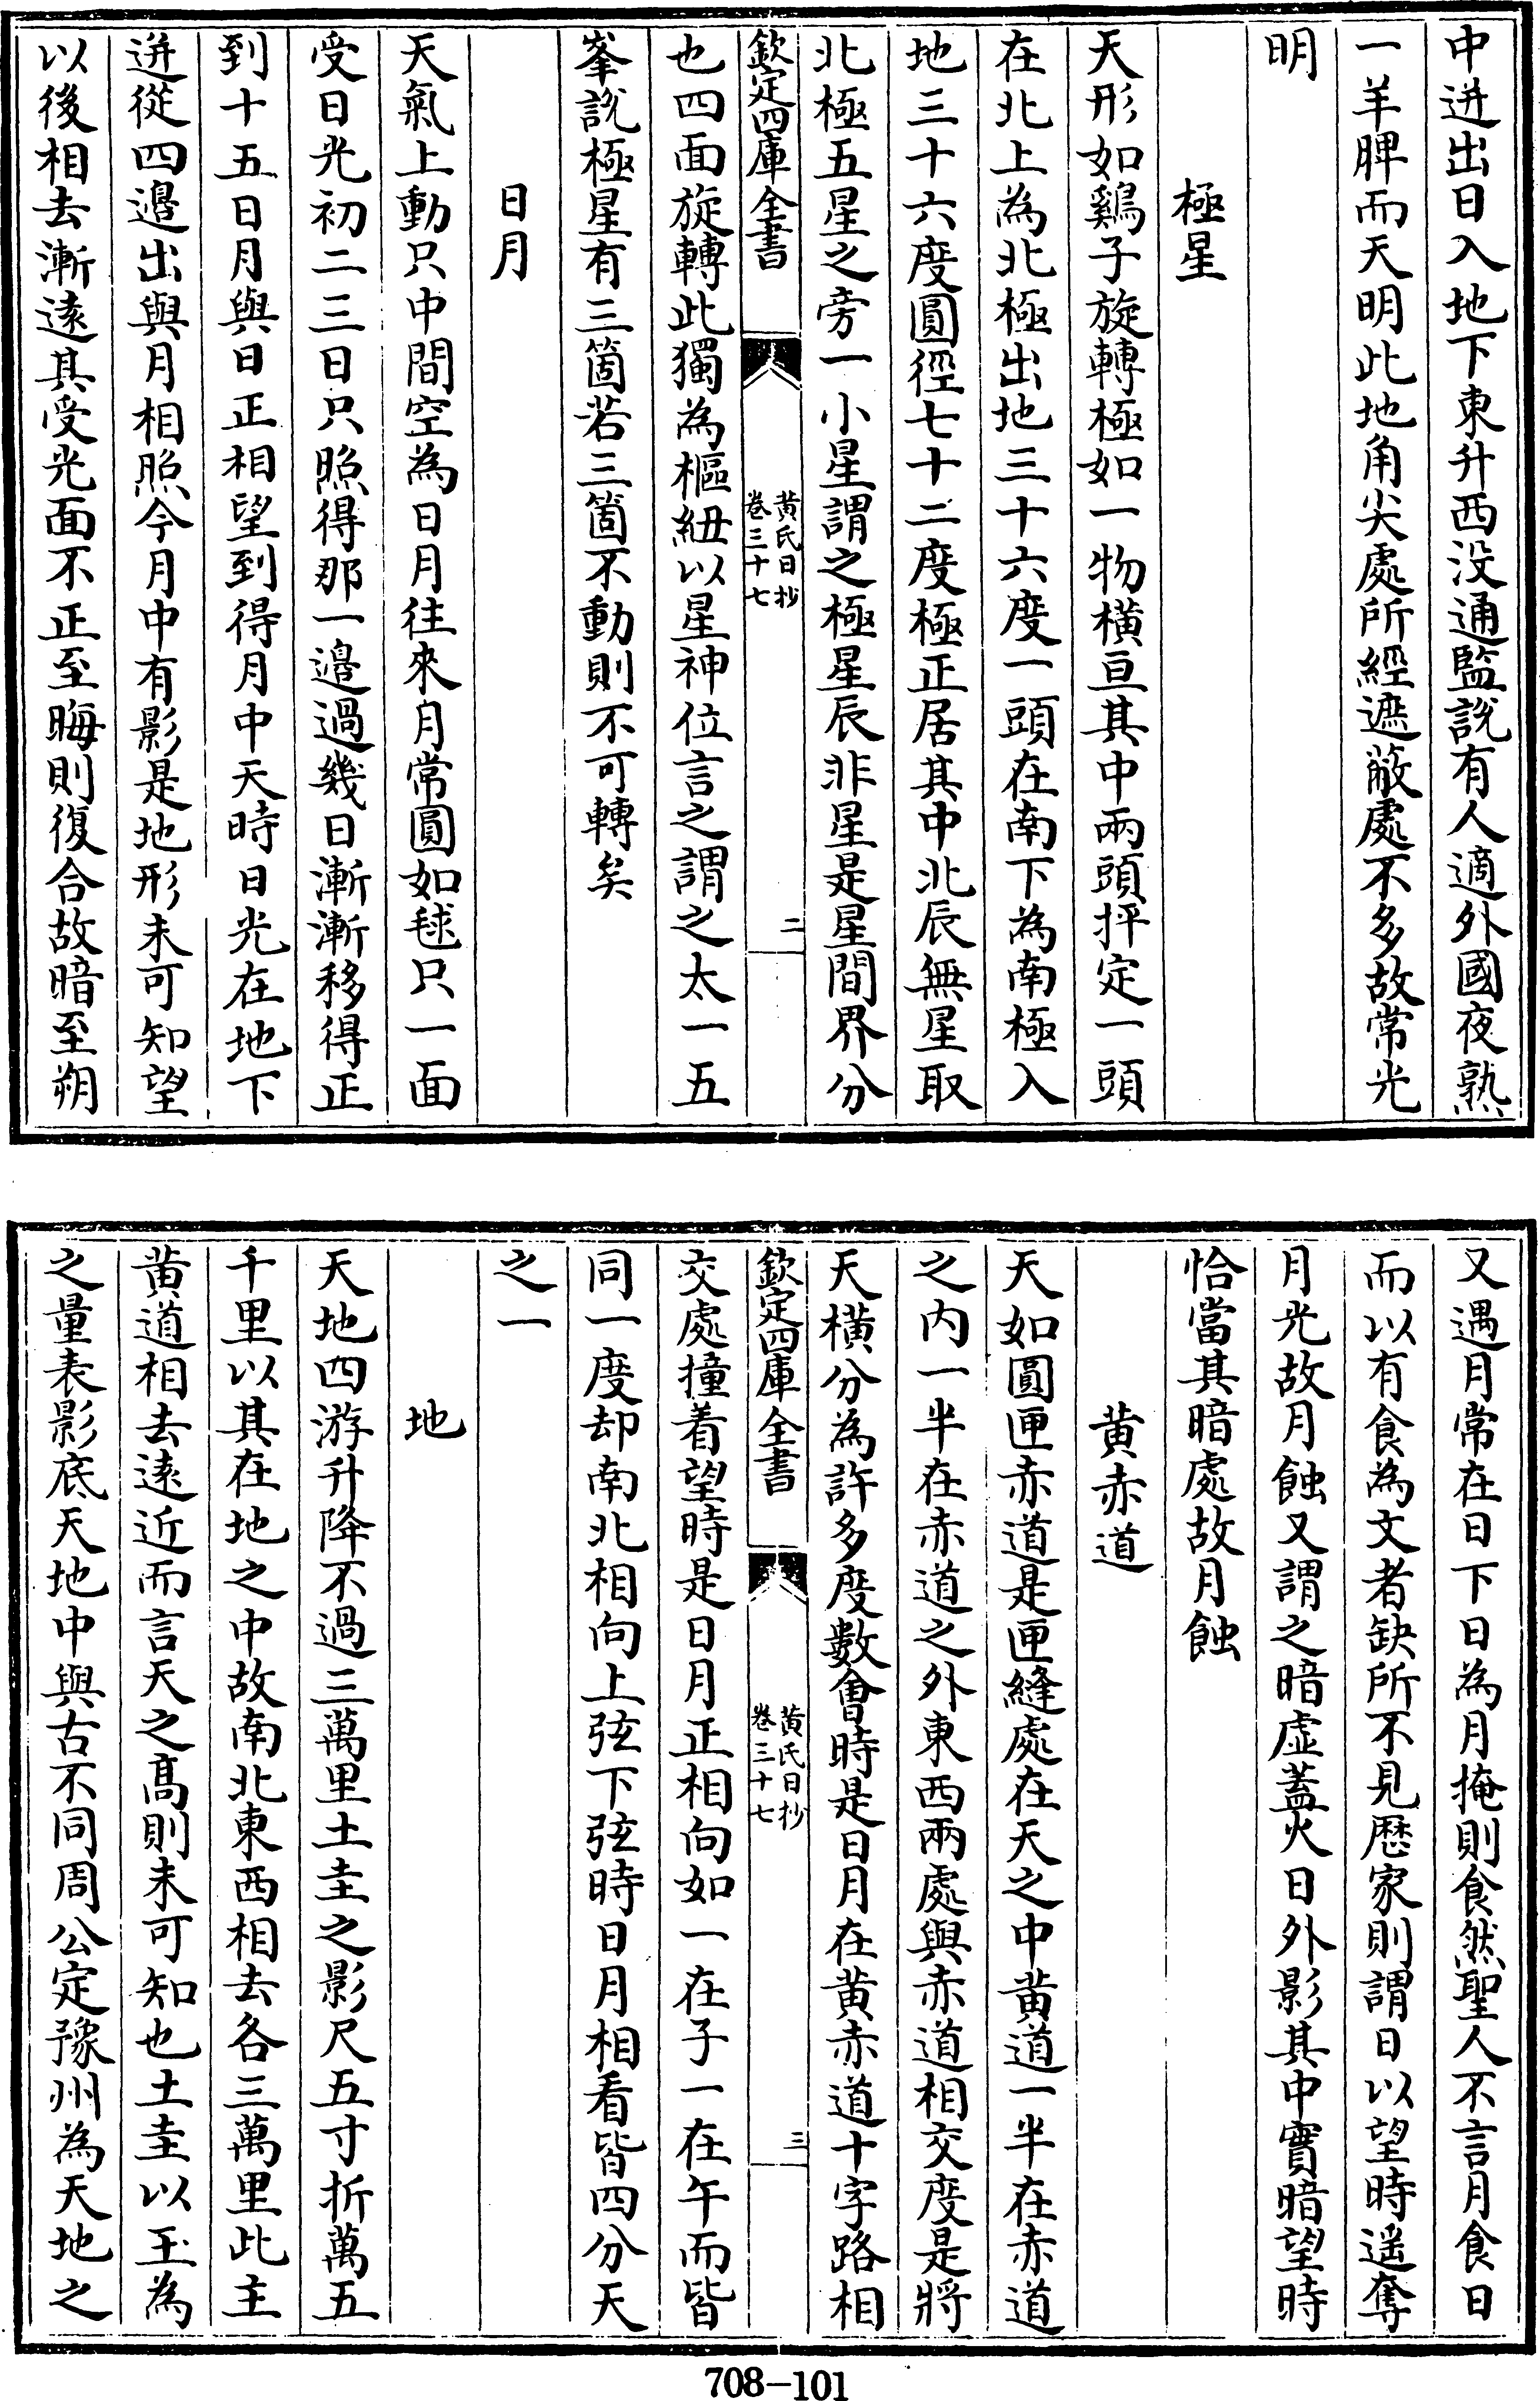 中迸出日入地下東升西没通監説有人適外國夜熟
一羊脾而天明此地角尖處所經遮蔽處不多故常光
明
極星
天形如鷄子旋轉極如一物橫亘其中兩頭抨定一頭
在北上為北極出地三十六度一頭在南下為南極入
地三十六度圓徑七十二度極正居其中北辰無星取
北極五星之旁一小星謂之極星辰非星是星間界分
欽定四庫全書
黄氏日抄
卷三十七
二
也四面旋轉此獨為樞紐以星神位言之謂之太一五
峯説極星有三箇若三箇不動則不可轉矣
日月
天氣上動只中間空為日月往來月常圓如毬只一面
受日光初二三日只照得那一邉過幾日漸漸移得正
到十五日月與日正相望到得月中天時日光在地下
迸從四邉出與月相照今月中有影是地形未可知望
以後相去漸逺其受光面不正至晦則復合故暗至朔
又遇月常在日下日為月掩則食然聖人不言月食日
而以有食為文者缺所不見厯家則謂日以望時遥奪
月光故月蝕又謂之暗虚蓋火日外影其中實暗望時
恰當其暗處故月蝕
黄赤道
天如圓匣赤道是匣縫處在天之中黄道一半在赤道
之内一半在赤道之外東西兩處與赤道相交度是將
天橫分為許多度數㑹時是日月在黄赤道十字路相
欽定四庫全書
黄氏日抄
卷三十七
三
交處撞着望時是日月正相向如一在子一在午而皆
同一度却南北相向上弦下弦時日月相看皆四分天
之一
地
天地四游升降不過三萬里土圭之影尺五寸折萬五
千里以其在地之中故南北東西相去各三萬里此主
黄道相去逺近而言天之髙則未可知也土圭以玉為
之量表影底天地中與古不同周公定豫州為天地之
708-101